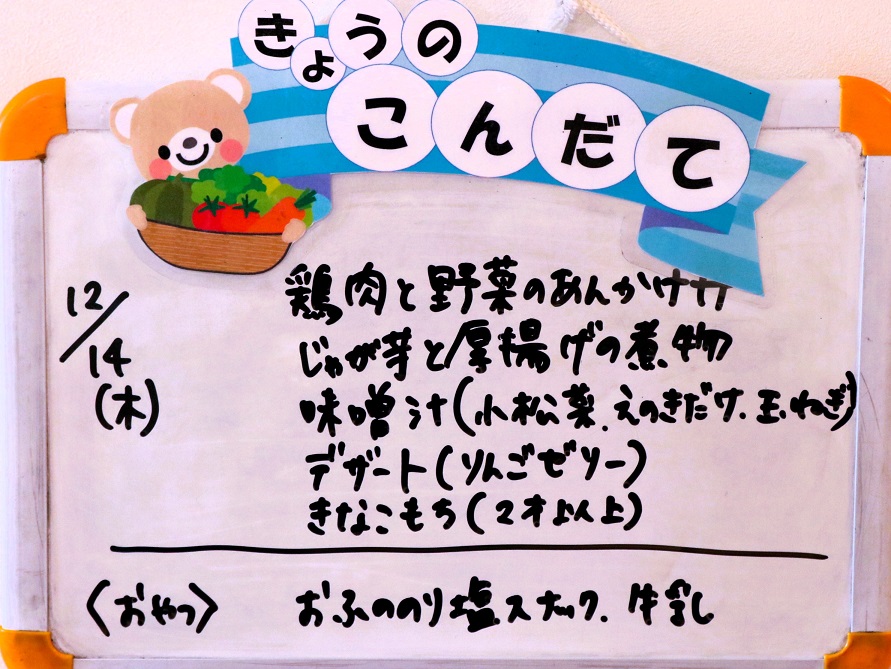 きょうの
こんだて
12/14
(木)
鶏肉と野菜のあんかけ
じゃが芋と厚揚げの煮物
味噌汁(小松菜、えのきだけ、玉ねぎ)
デザート(りんごゼリー)
きなこもち(2才以上)
〈おやつ〉
おふののり塩スナック、牛乳